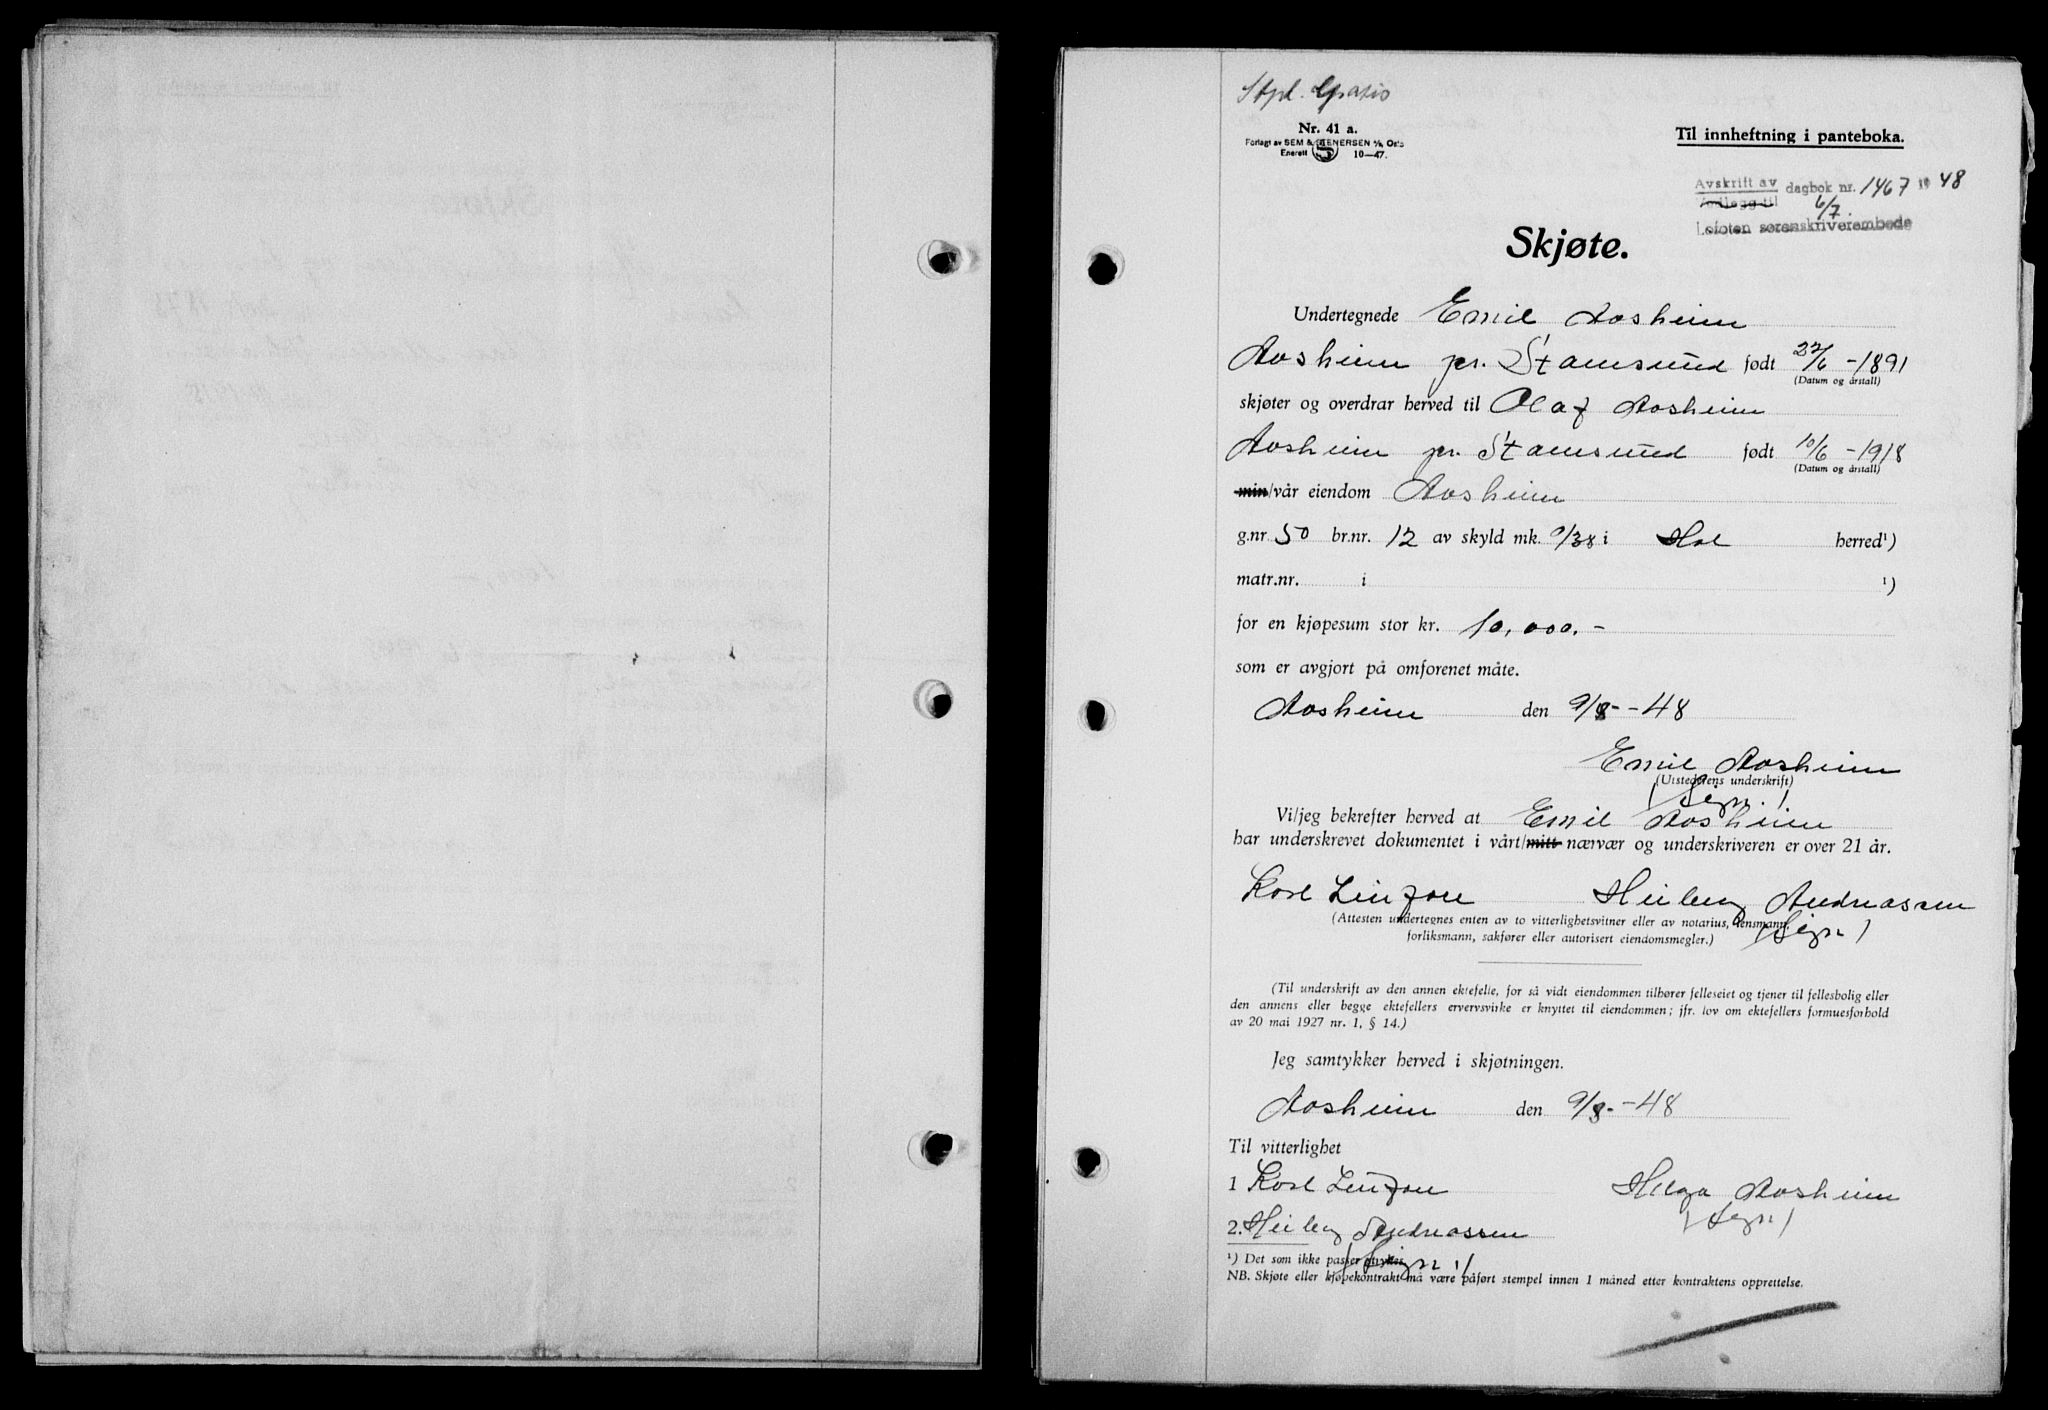 Stpl. Gratis
Nr. 41 a.
Forlagt av SEM & STENERSEN A/S, Oslo
Enerett 10—47.
Til innheftning i panteboka.
Avskrift av dagbok nr. 1467 19 48
Vedlegg til 6/7.
Lofoten sorenskriverembede
Skjøte.
Undertegnede Emil Aasheim
Aasheim pr. Stamsund født 22/6 - 1891
(Datum og årstall)
skjøter og overdrar herved til Olaf Aasheim
Aasheim pr. Stamsund født 10/6 - 1918
(Datum og årstall)
min/vår eiendom Aasheim
g.nr 50 br.nr. 12 av skyld mk. 0/38 i Hol herred¹)
matr.nr. i ¹)
for en kjøpesum stor kr. 10,000.-
som er avgjort på omforenet måte.
Aasheim den 9/8- - 48
Emil Aasheim
(Utstederens underskrift)
(sign.)
Vi/jeg bekrefter herved at Emil Aasheim
har underskrevet dokumentet i vårt/mitt nærvær og underskriveren er over 21 år.
Andreassen
(Attesten undertegnes enten av to vitterlighetsvitner eller av notarius, lensmann,
forliksmann, sakfører eller autorisert eiendomsmegler.) (sign)
(Til underskrift av den annen ektefelle, for så vidt eiendommen tilhører felleseiet og tjener til fellesbolig eller
den annens eller begge ektefellers ervervsvirke er knyttet til eiendommen; jfr. lov om ektefellers formuesforhold
av 20 mai 1927 nr. 1, § 14.)
Jeg samtykker herved i skjøtningen.
Aasheim den 9/8- - 48
Til vitterlighet
1 Helga Aasheim
(sign)
2. Andreassen
(sign)
¹) Det som ikke passer strykes.
NB. Skjøte eller kjøpekontrakt må være påført stempel innen 1 måned etter kontraktens opprettelse.